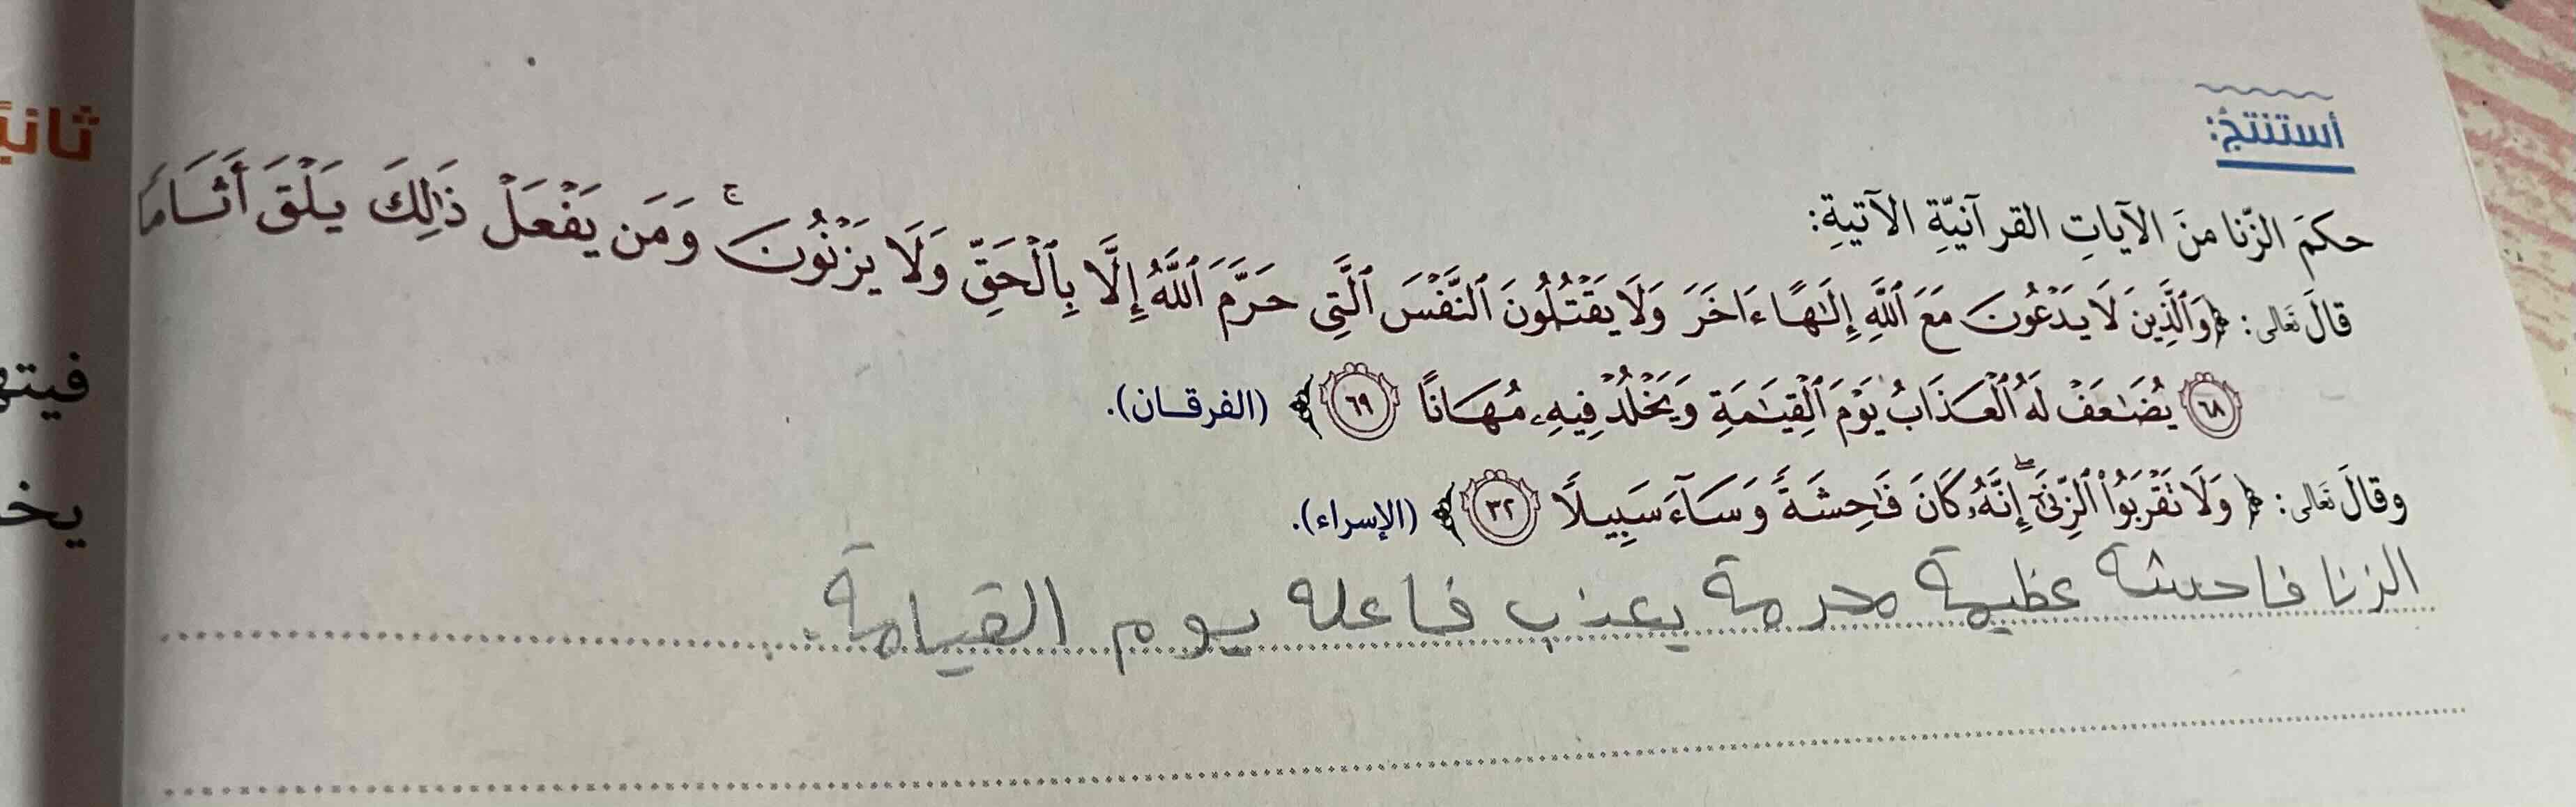 أستنتجُ:
حكمَ الزّنا منَ الآياتِ القرآنيّةِ الآتيةِ:
قالَ تَعالى: ﴿وَٱلَّذِينَ لَا يَدۡعُونَ مَعَ ٱللَّهِ إِلَٰهًا ءَاخَرَ وَلَا يَقۡتُلُونَ ٱلنَّفۡسَ ٱلَّتِي حَرَّمَ ٱللَّهُ إِلَّا بِٱلۡحَقِّ وَلَا يَزۡنُونَۚ وَمَن يَفۡعَلۡ ذَٰلِكَ يَلۡقَ أَثَامٗا
٦٨ يُضَٰعَفۡ لَهُ ٱلۡعَذَابُ يَوۡمَ ٱلۡقِيَٰمَةِ وَيَخۡلُدۡ فِيهِۦ مُهَانًا ٦٩﴾ (الفرقان).
وقالَ تَعالى: ﴿وَلَا تَقۡرَبُواْ ٱلزِّنَىٰٓۖ إِنَّهُۥ كَانَ فَٰحِشَةٗ وَسَآءَ سَبِيلٗا ٣٢﴾ (الإسراء).
الزنا فاحشة عظيمة محرمة يعذب فاعله يوم القيامة.
ثانيً
فيته
يخ